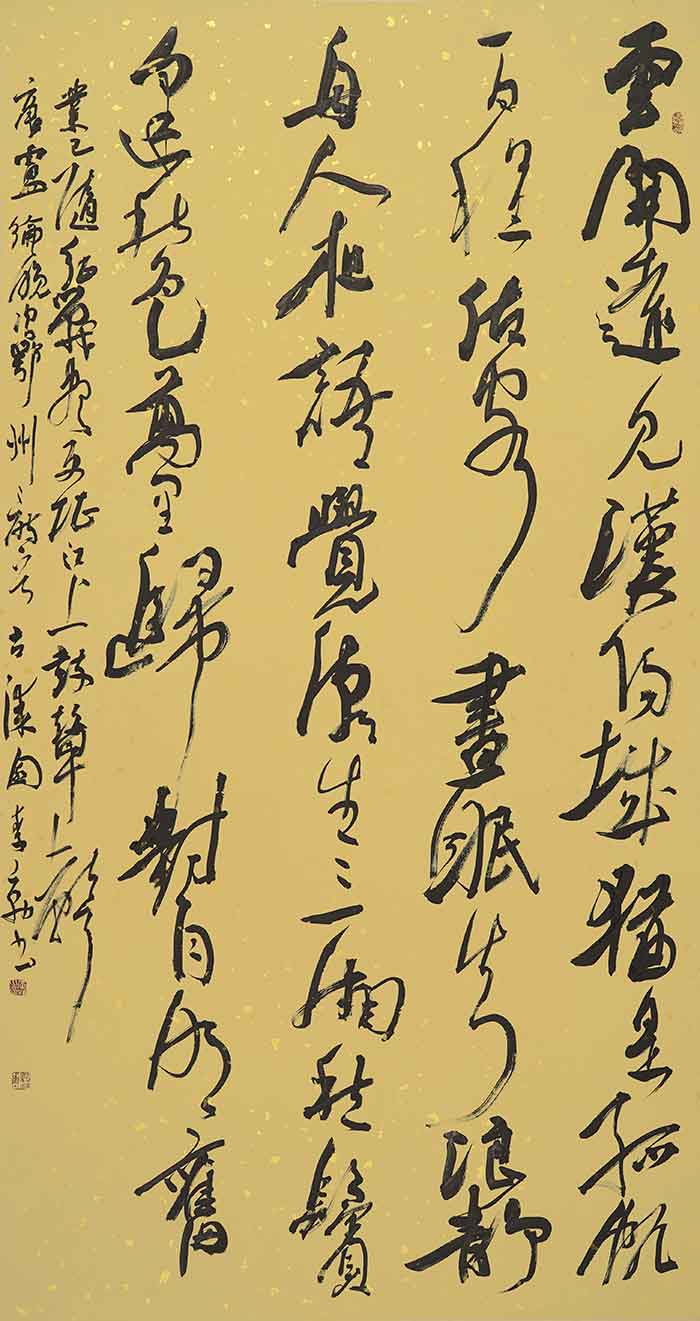 雲開遠見漢陽城猶是孤帆
一日程估客晝眠知浪靜
舟人夜語覺潮生三湘愁鬢
逢秋色萬里歸對月明舊
業已隨征戰盡更堪江上鼓鼙聲
唐盧綸晚次鄂州詩